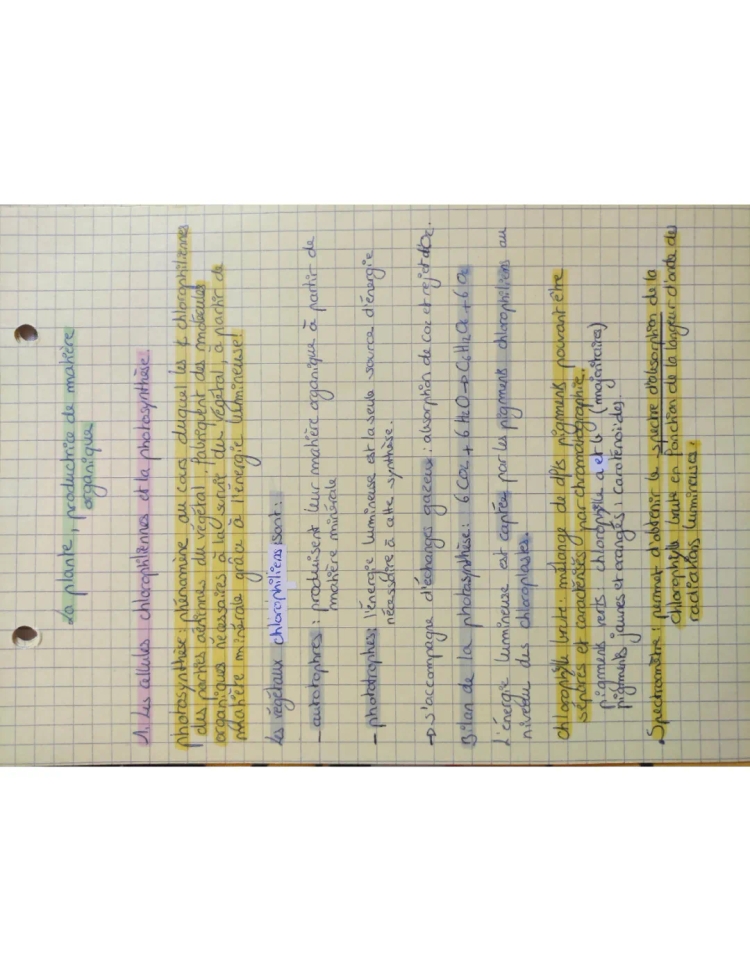 La plante, productrice de matière
organique
1. Les cellules chlorophiliennes et la photosynthèse.
photosynthèse : phénomène au cours duquel les ¢ chlorophiliennes
des parties aériennes du végétal, fabriquent des molécules
organiques nécessaires à la survie du végétal à partir de
matière minérale grâce à l'énergie lumineuse!
Les végétaux chlorophiliens sont :
- autotophres : produisent leur matière organique à partir de
matière minérale
- phototrophes : l'énergie lumineuse est la seule source d'énergie
nécessaire à cette synthèse.
→ s'accompagne d'échanges gazeux : absorption de CO2 et rejet d'O2.
Bilan de la photosynthèse : 6 CO2 + 6 H2O → C6H12O6 + 6 O2
L'énergie lumineuse est captée par les pigments chlorophiliens au
niveau des chloroplastes.
chlorophylle brute : mélange de plrs pigments pouvant être
séparés et caractérisés par chromatographie.
pigments verts chlorophylle a et b (majoritaires)
pigments jaunes et orangés : caroténoïdes.
Spectromètre : permet d'obtenir le spectre d'absorption de la
chlorophylle brute en fonction de la longueur d'onde des
radiations lumineuses.